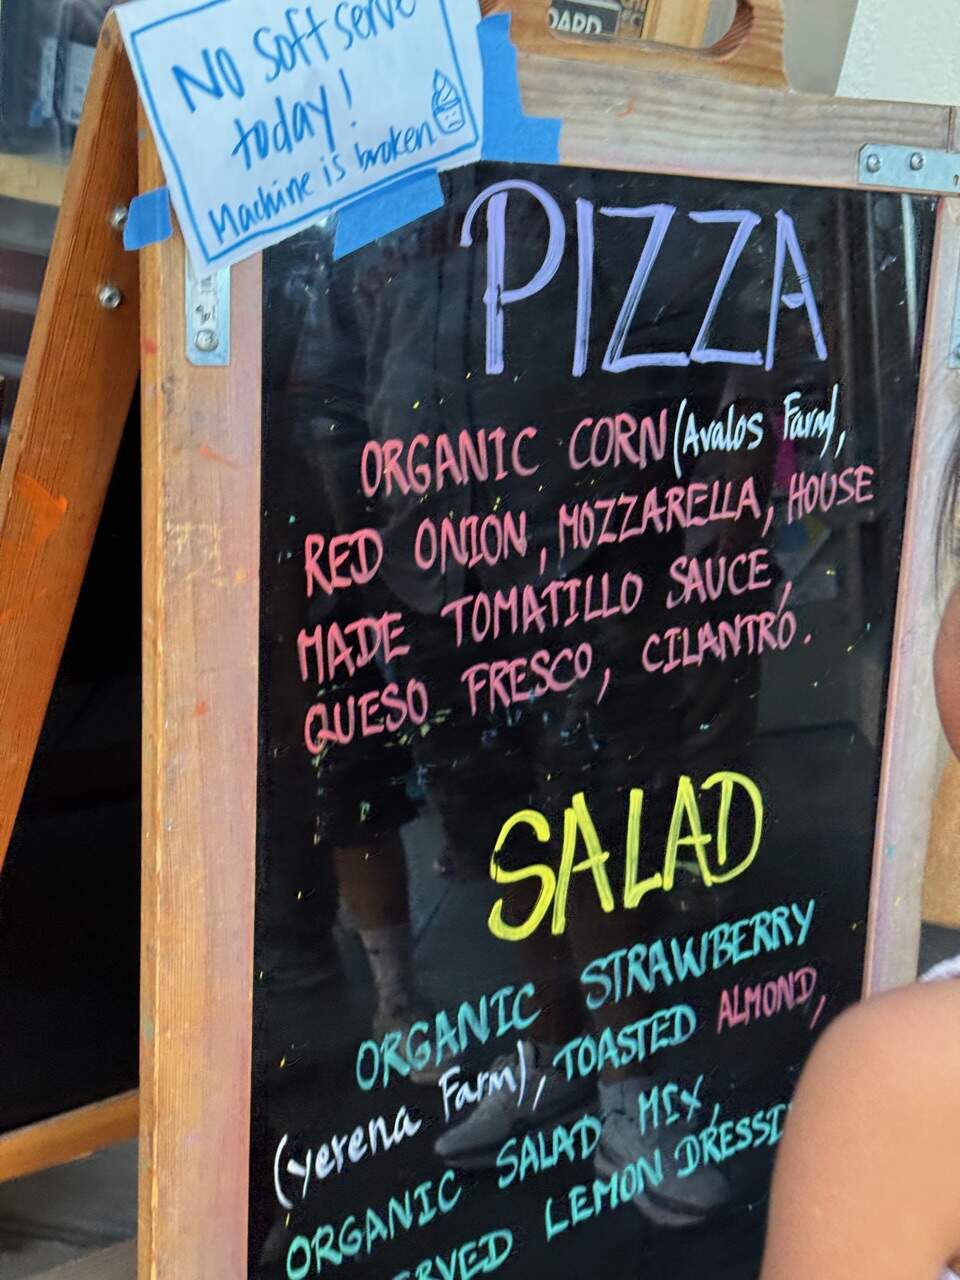 NO Soft serve
today!
Machine is broken
PIZZA
ORGANIC CORN (Avalos Farm),
RED ONION, MOZZARELLA, HOUSE
MADE TOMATILLO SAUCE,
QUESO FRESCO, CILANTRO.
SALAD
ORGANIC STRAWBERRY
(yerena Farm), TOASTED ALMOND,
ORGANIC SALAD MIX,
LEMON